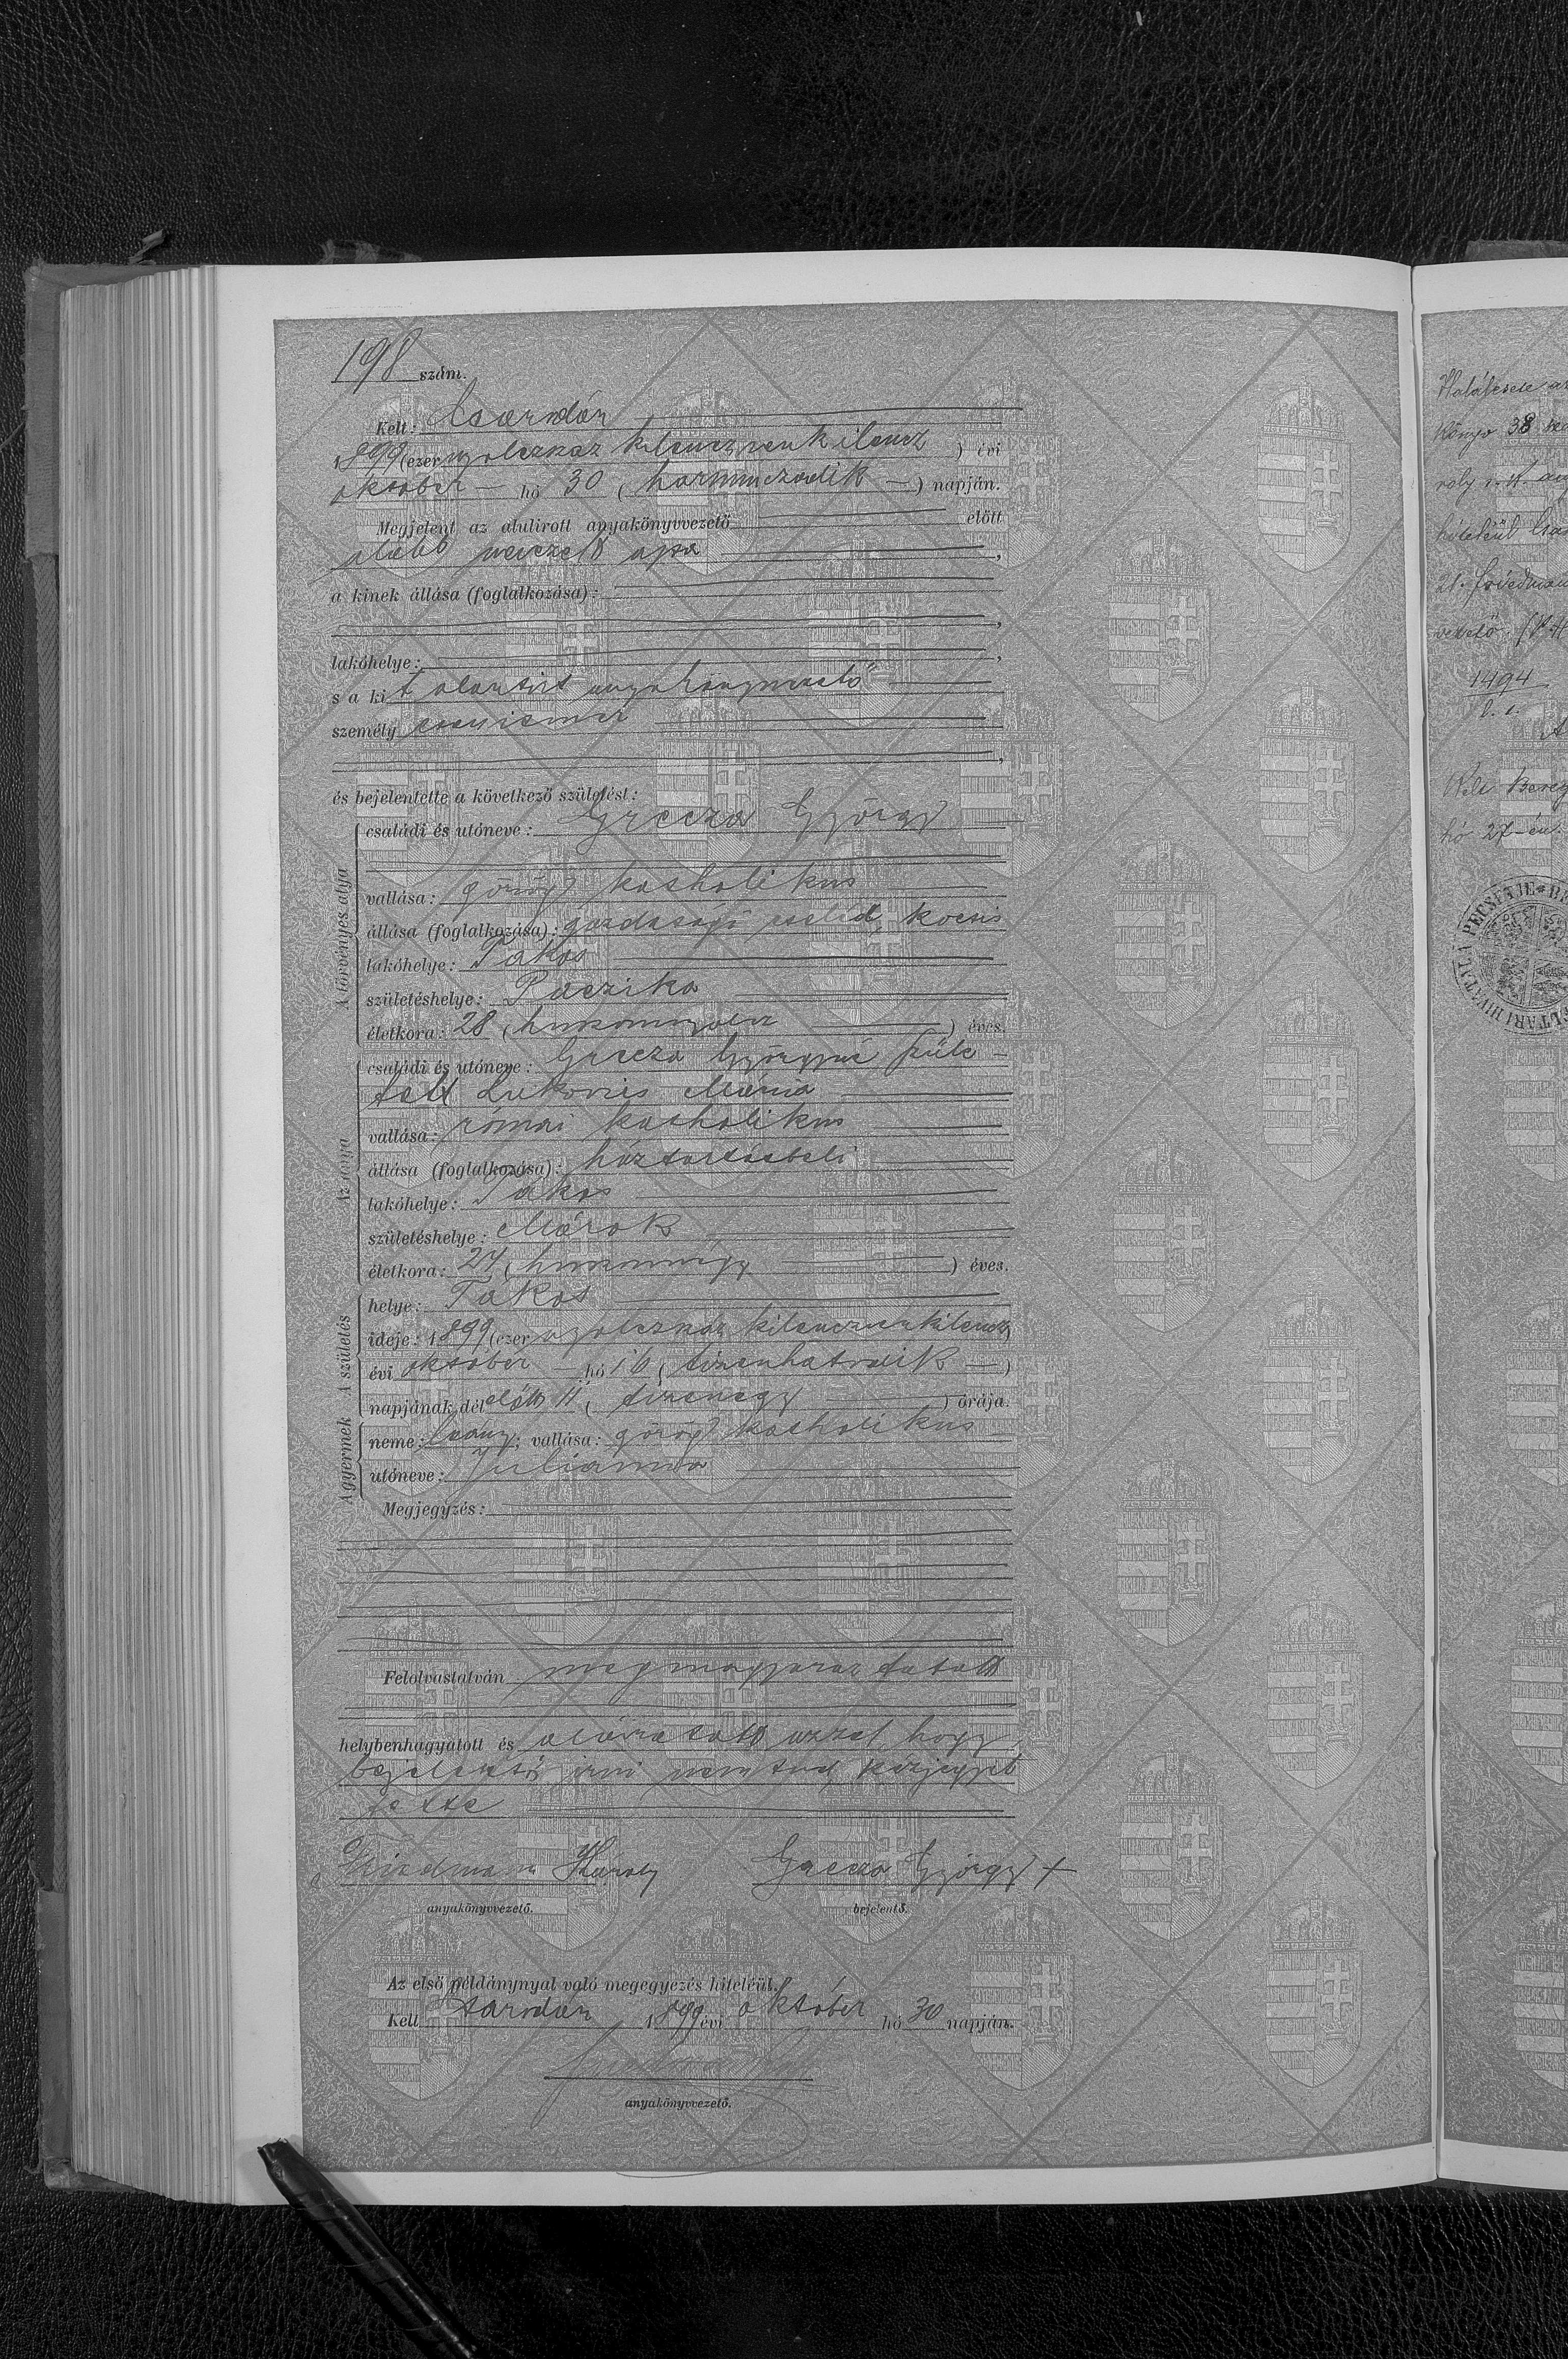 198 szám.
Kelt: Csarodán
1899 (ezernyolczszáz kilenczvenkilencz) évi
október hó 30 (harminczadik) napján.
Megjelent az alulirott anyakönyvvezető előtt
alább nevezett apa,
a kinek állása (foglalkozása):
lakóhelye:
s a kit alantirt anyakönyvvezető
személy
és bejelentette a következő születést:
A törvényes atyja
családi és utóneve: Grecza György
vallása: görög katholikus
állása (foglalkozása): gazdasági cseléd, kocsis
lakóhelye: Tákos
születéshelye: Paczika
életkora: 28 (huszonnyolcz) éves.
Az anya
családi és utóneve: Grecza Györgyné szüle-
tett Lukovics Mária
vallása: római katholikus
állása (foglalkozása): háztartásbeli
lakóhelye: Tákos
születéshelye: Márok
életkora: 24 (huszonnégy) éves.
A születés
helye: Tákos
ideje: 1899 (ezernyolczszáz kilenczvenkilencz)
évi október hó 16 (tizenhatodik)
napjának dél előtt 11 (tizenegy) órája.
A gyermek
neme: leány; vallása: görög katholikus
utóneve: Juliánna
Megjegyzés:
Felolvastatván megmagyaráztatott
helybenhagyatott és aláiratott azzal, hogy
bejelentő irni nem tud kézjegyét
tette
Friedmann Károly Grecza György +
anyakönyvvezető. bejelentő.
Az első példánynyal való megegyezés hiteléül.
Kelt Csarodán 1899 évi október hó 30 napján.
anyakönyvvezető.
könyv 38
21. Friedmann
1494
hó 27-én